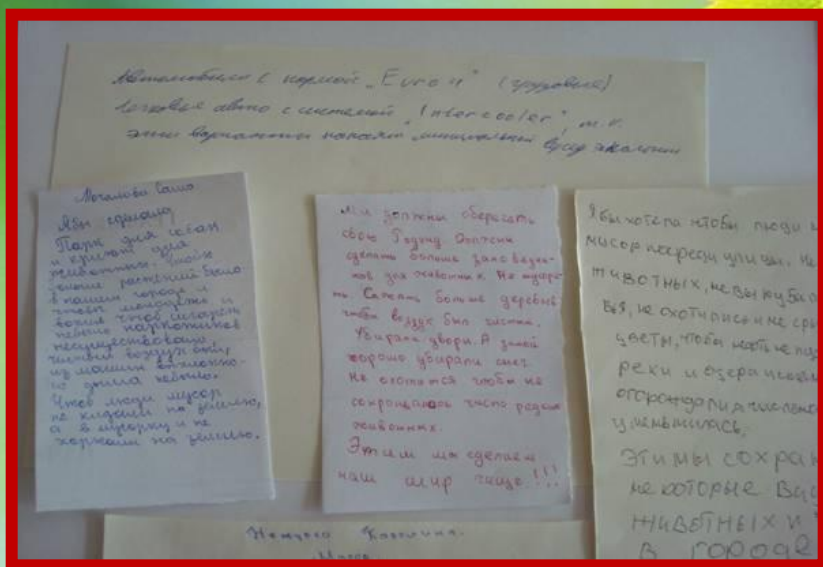 Автомобили с нормой „Euro 4" (грузовые)
легковые авто с системой „Intercooler", т.к.
эти варианты наносят минимальный вред экологии
Саша
Я бы сделала
Парк для собак
и приют для
животных. Чтобы
растений было
в нашем городе и
чтобы
чтоб сигарет
небыло наркотиков
несуществовало
чистый воздух был,
из машин
го дыма небыло.
Чтоб люди мусор
не кидали на землю,
а в мусорку и не
харкали на землю.
Мы должны оберегать
свою Родину. Должны
сделать больше заповедни-
ков для животных. Не мусори-
ть. Сажать больше деревьев
чтобы воздух был чистым.
Убирали дворы. А зимой
хорошо убирали снег.
Не охотится чтобы не
сокращалось число редких
животных.
Этим мы сделаем
наш мир чище!!!
Я бы хотела чтобы люди
мусор посреди улицы. Не
животных, не вырубали
вья, не охотились и не
цветы, чтобы
реки и озёра
огорождали
уменьшилась.
Этим мы сохран
некоторые ви
животных и
в городе
Каролина.